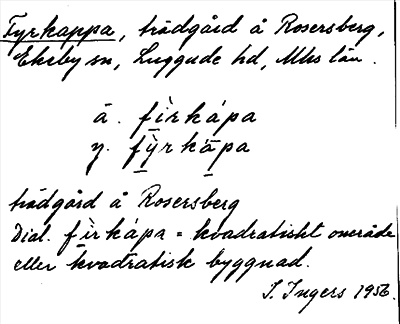 Fyrkappa, trädgård å Rosersberg,
Ekeby sn, Luggude hd, Mhs län.
ä. fìrkápa
y. fỳrkāpa
trädgård å Rosersberg
Dial. fìrkápa = kvadratiskt område
eller kvadratisk byggnad.
I. Ingers 1956.